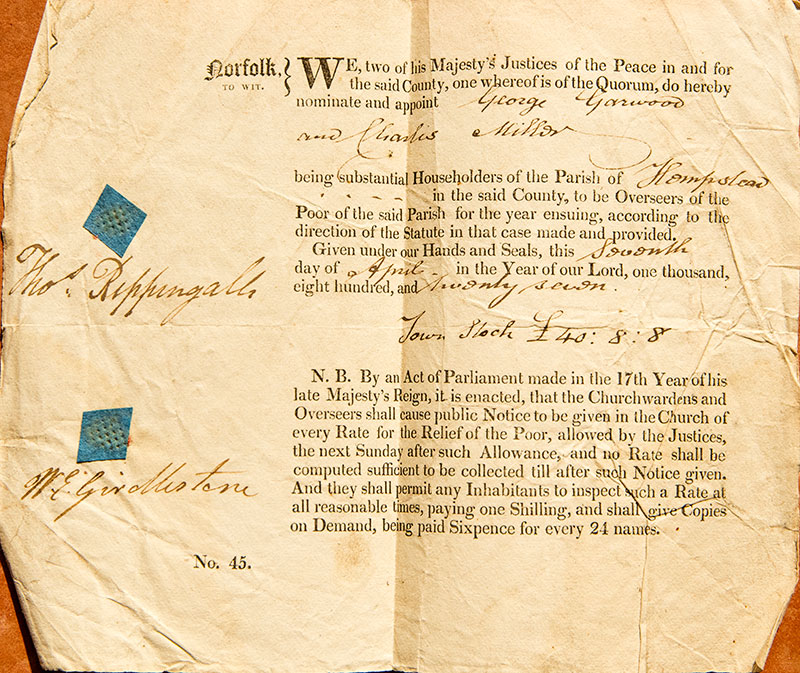 Norfolk, } WE, two of his Majesty's Justices of the Peace in and for
TO WIT. the said County, one whereof is of the Quorum, do hereby
nominate and appoint George Garwood
and Charles Miller
being substantial Householders of the Parish of Hempstead
- - - - in the said County, to be Overseers of the
Poor of the said Parish for the year ensuing, according to the
direction of the Statute in that case made and provided.
Given under our Hands and Seals, this Seventh
day of April in the Year of our Lord, one thousand,
eight hundred, and twenty seven.
Thos. Rippingall
Town Stock £40: 8: 8
N. B. By an Act of Parliament made in the 17th Year of his
late Majesty's Reign, it is enacted, that the Churchwardens and
Overseers shall cause public Notice to be given in the Church of
every Rate for the Relief of the Poor, allowed by the Justices,
the next Sunday after such Allowance, and no Rate shall be
computed sufficient to be collected till after such Notice given.
And they shall permit any Inhabitants to inspect such a Rate at
all reasonable times, paying one Shilling, and shall give Copies
on Demand, being paid Sixpence for every 24 names.
W. E. Girdlestone
No. 45.